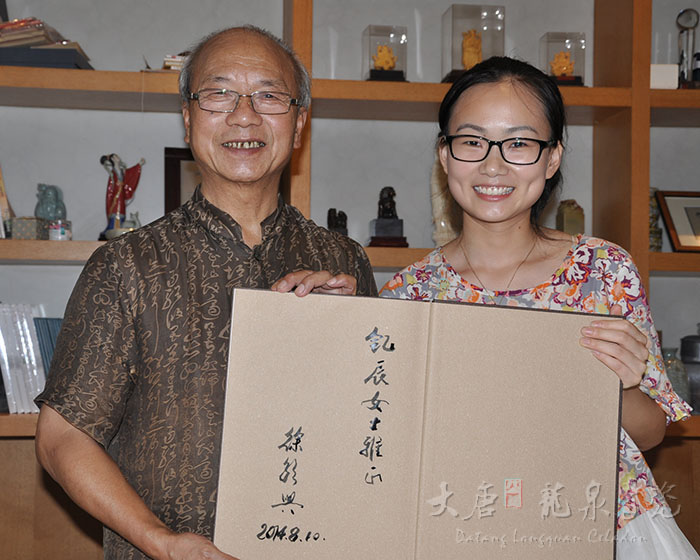 釔辰女士雅正
徐朝兴
2014.8.10.
大唐龙泉青瓷
Datang Longquan Celadon